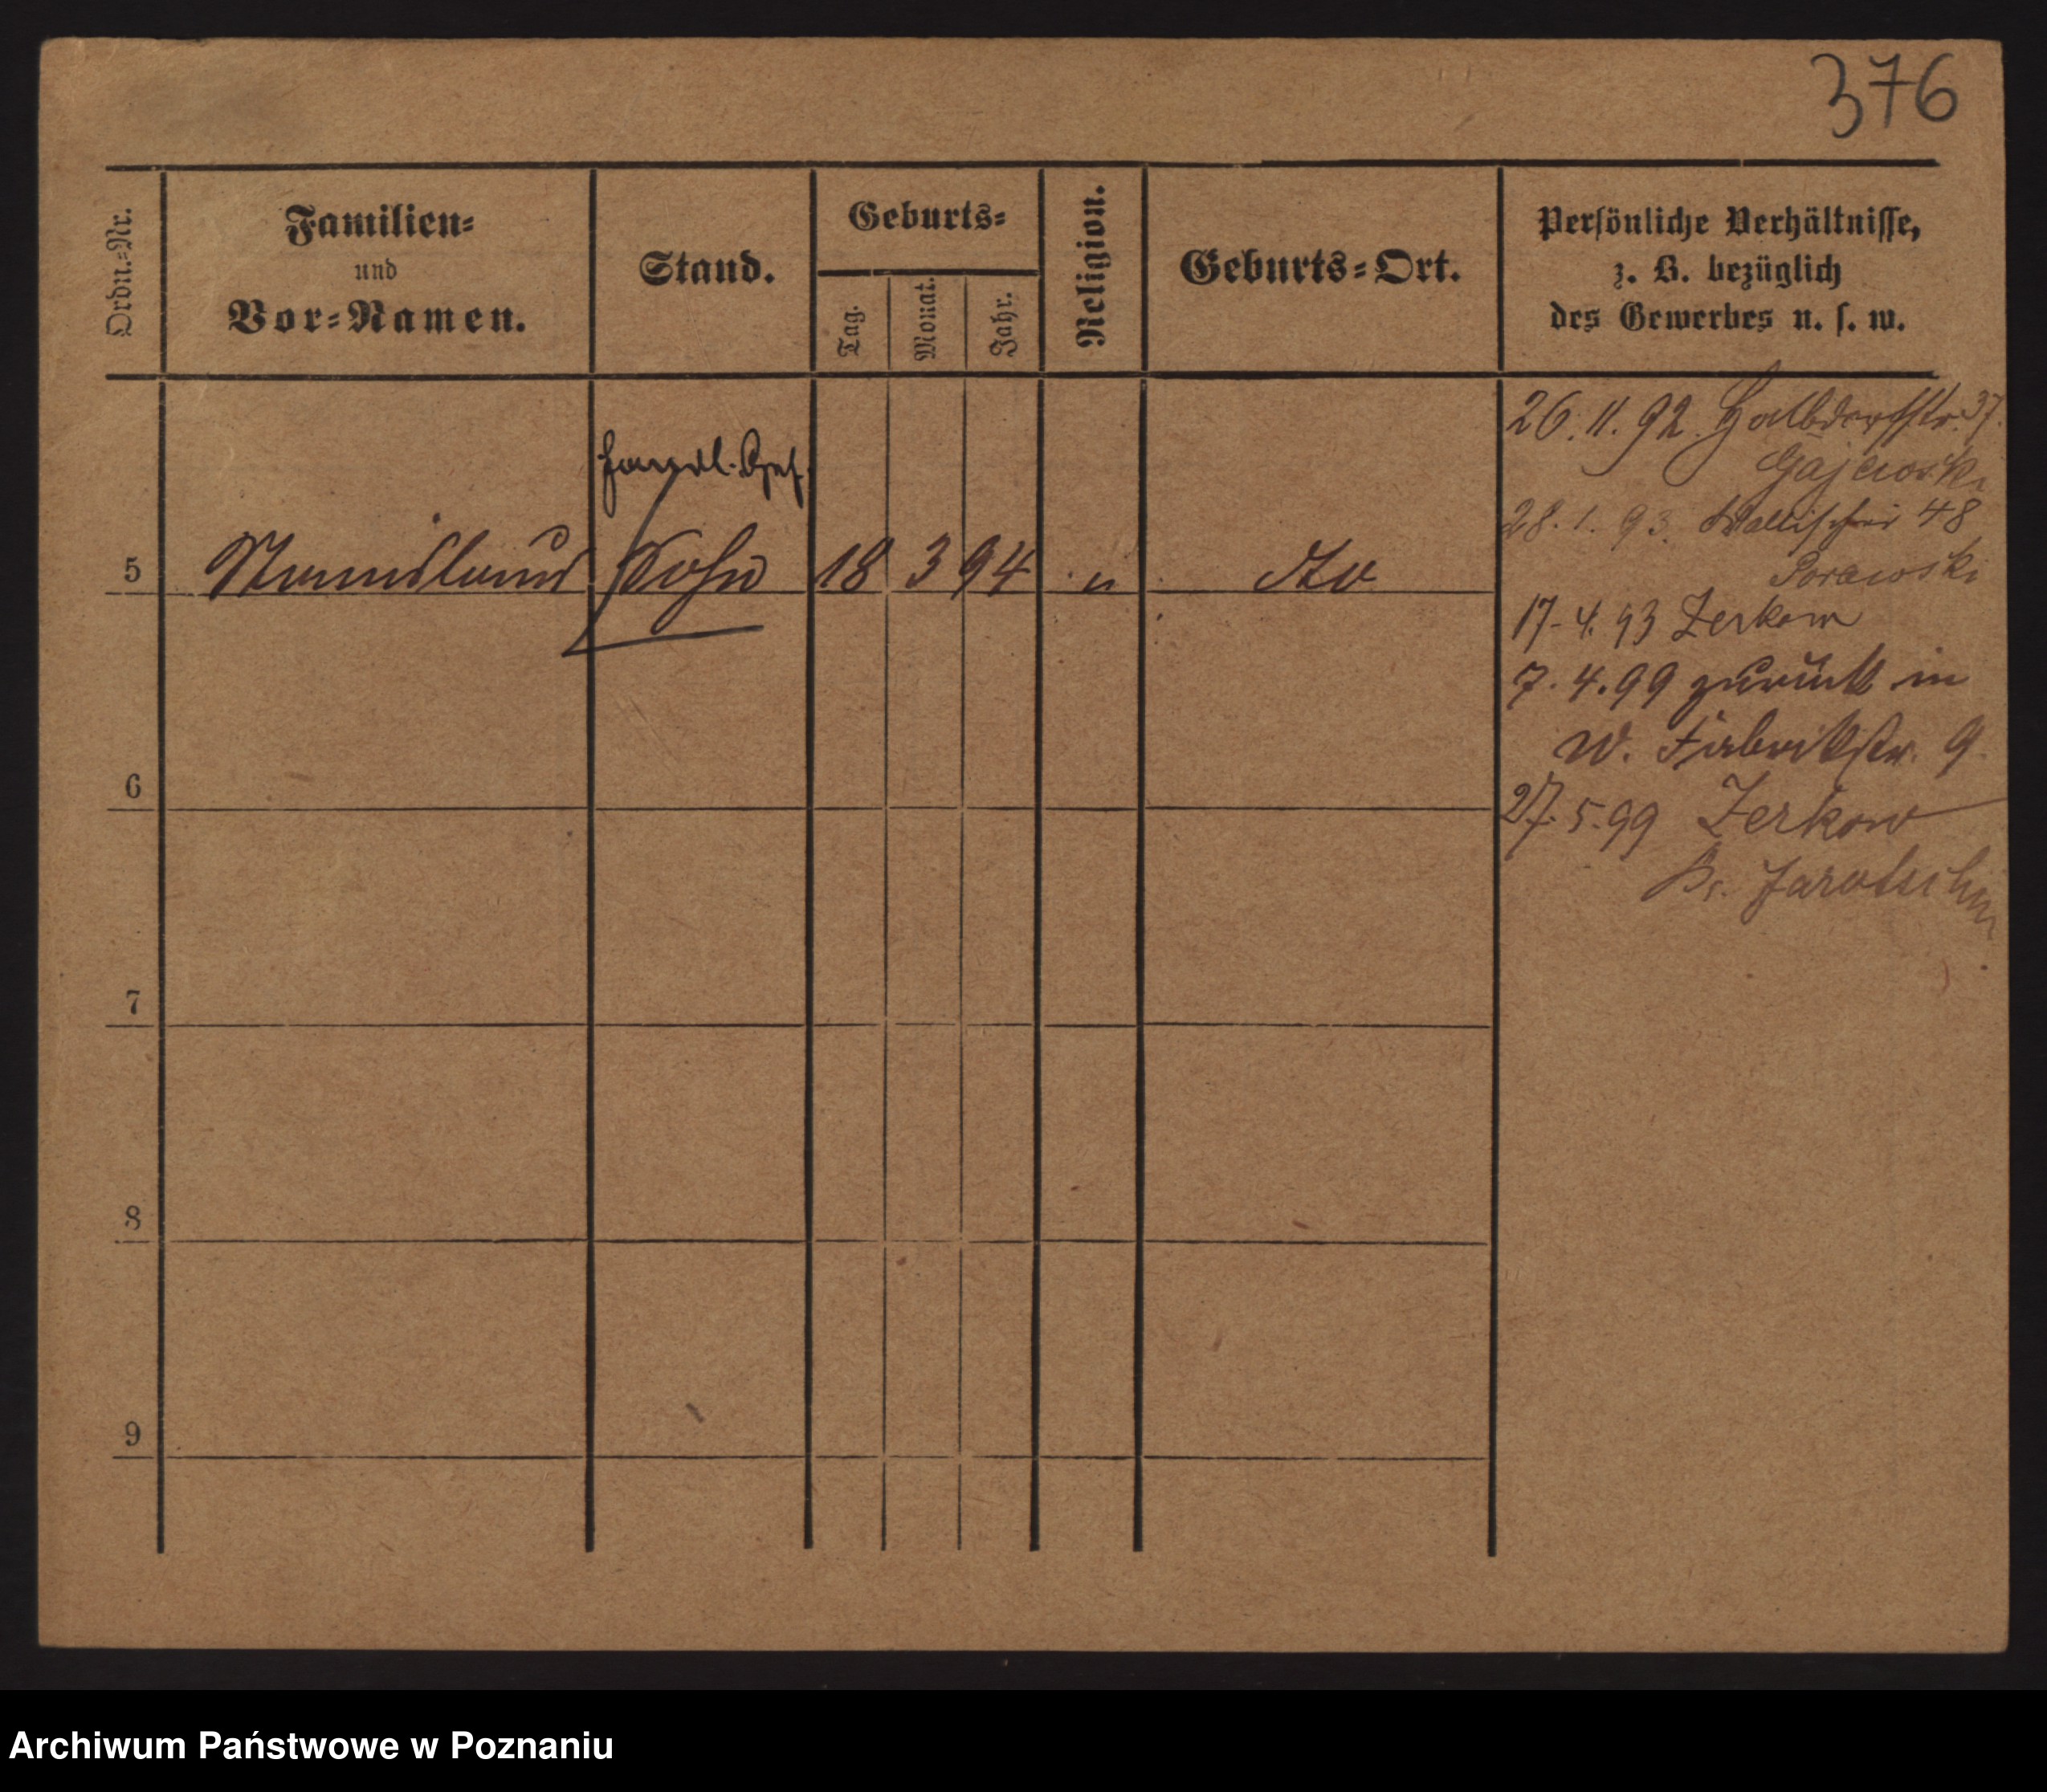 376
Ordn.-Nr.
Familien-
und
Vor-Namen.
Stand.
Geburts-
Tag.
Monat.
Jahr.
Religion.
Geburts-Ort.
Persönliche Verhältnisse,
z. B. bezüglich
des Gewerbes u. s. w.
26. 11. 92. Halbdorfstr. 37.
Gajewski
28. 1. 93. Wallischei 48
Porawski
17. 4. 93 Zerkow
7. 4. 99 zurück in
W. Fabrikstr. 9.
27. 5. 99 Zerkow
Kr. Jarotschin
Handl. Geh.
5 Sohn 18 3 94 "
6
7
8
9
Archiwum Państwowe w Poznaniu